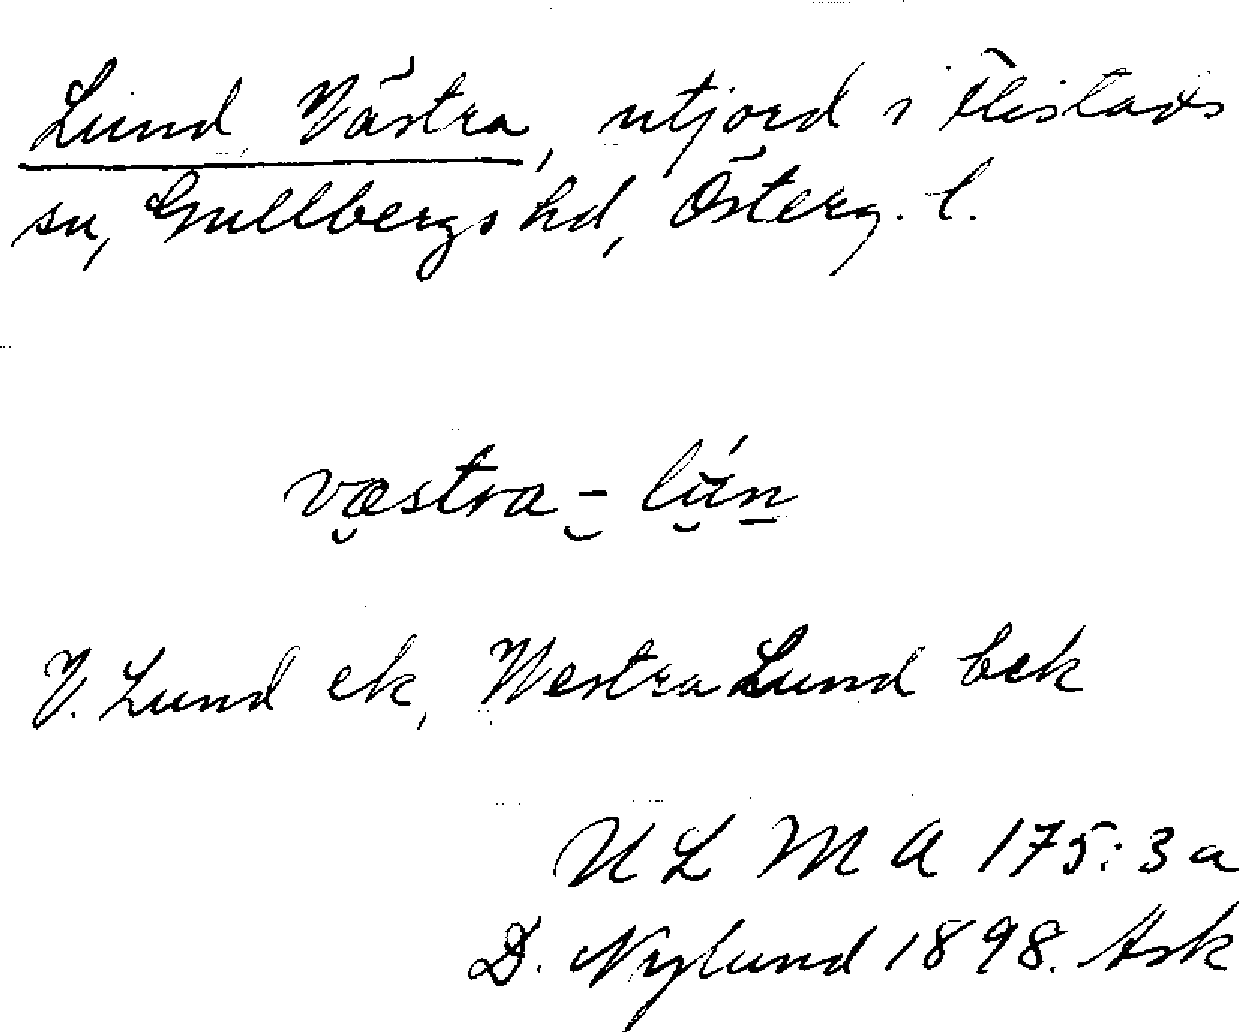 Lund, Västra, utjord i Flistads
sn, Gullbergs hd, Österg. l.
væstra - lún
V. Lund ek, Westra Lund bek
U L M A 175:3a
D. Nylund 1898. Ask